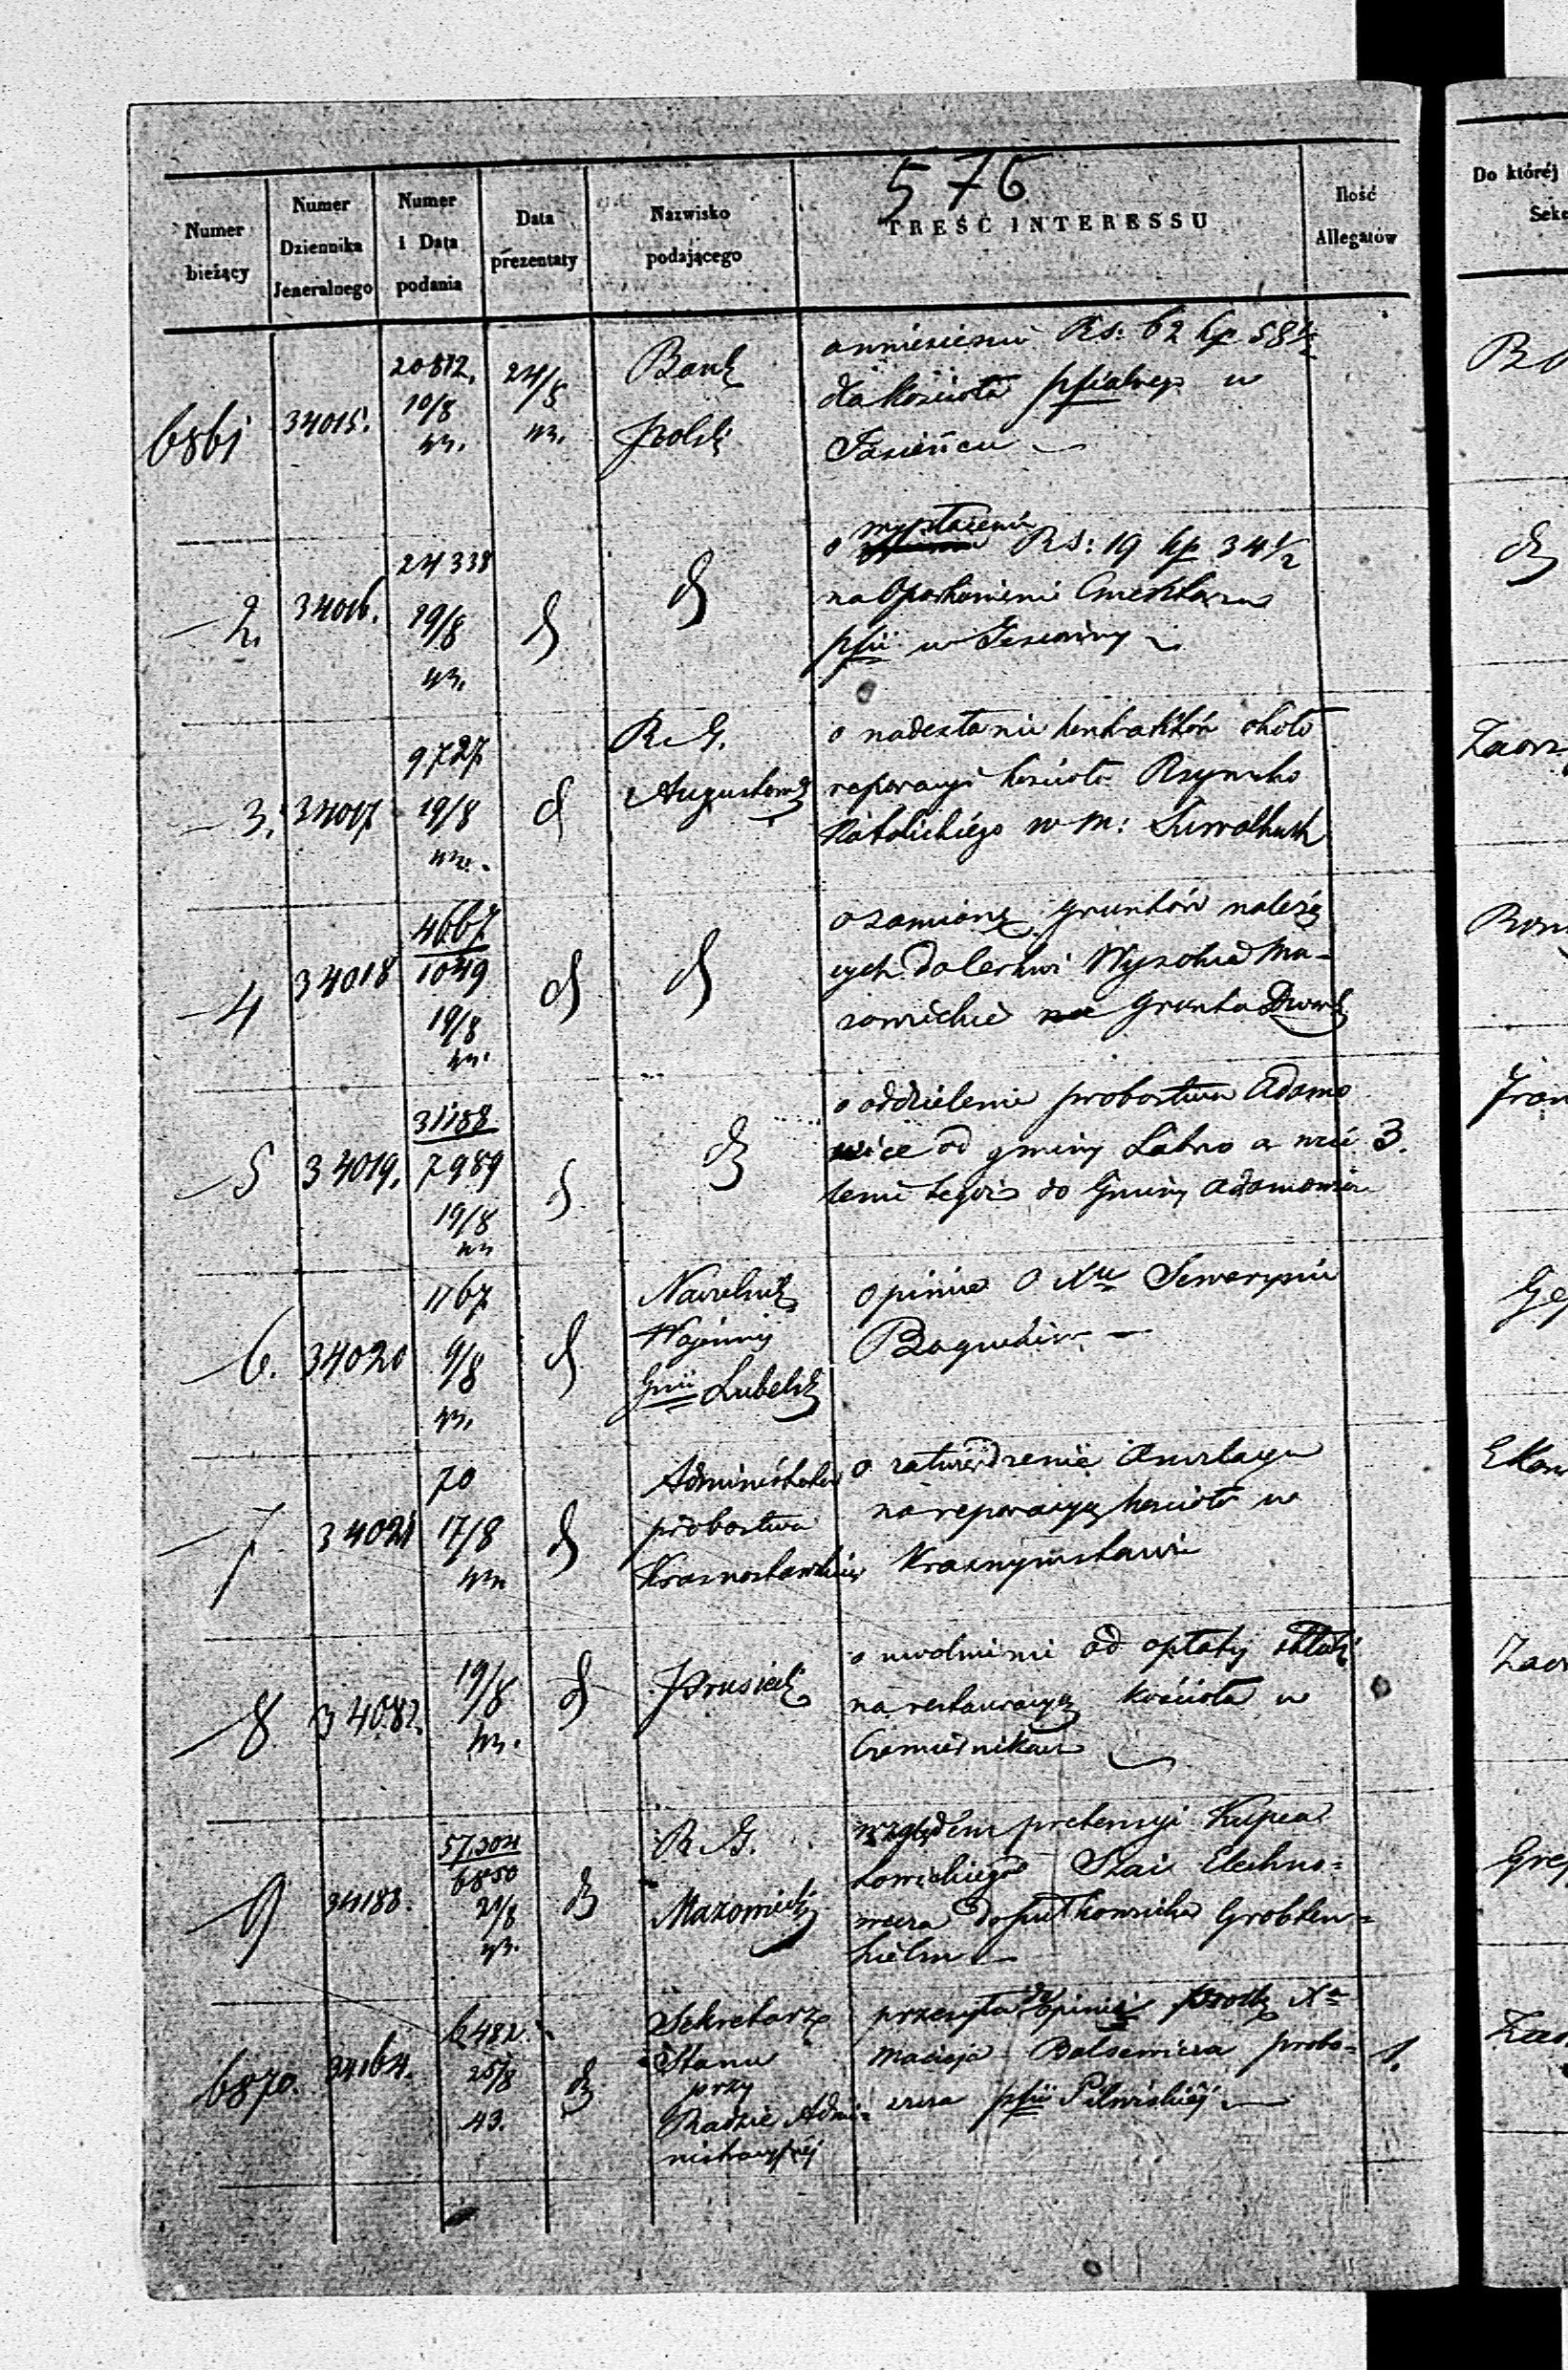 576
Numer bieżący
Numer Dziennika Jeneralnego
Numer i Data podania
Data prezentaty
Nazwisko podającego
TREŚĆ INTERESSU
Ilość Allegatów
Do któréj
6861 34015. 20812. 19/8 43. 24/8 43. Bank Polski
o wniesieniu Rs: 62 kp 58½
dla kościoła pfialnego w
Jasieńcu
2. 34016. 24338 19/8 43. d d
o wypłacenie Rs: 19 kp 34½
na
pfii w
3. 34017 9727 19/8 43. d R. G. Augustows
o nadesłanie kontraktów około
reperacyi kościoła Rzymsko
Katolickiego w m: Suwałkach
4 34018 4667 1049 19/8 43. d d
o zamianę gruntów należą
cych do Cerkwi Wysokie Ma-
zowieckie na grunta Dwors
5 34019. 31188 7989 19/8 43 d d
o oddzielenie probostwa Adamo
wice od gminy Łabno a wcie 3.
lenie tegoż do Gminy Adamowice
6. 34020 1767 9/8 43. d Naczelnik
Wojenny
Gnii Lubels
opinia o Xu Sewerynie
7 34021 70 17/8 43 d Administrator
probostwa
Krasnostawskiego
o zatwierdzenie Anszlagu
na reperacyą kościoła w
Krasnymstawie
8 34082. 19/8 43. d Prusiecki
o uwolnienie od opłaty składki
na restauracyą kościoła w
Czemiernikach
9 34188. 57.304 6850 21/8 43. d R. G.
Mazowiecki
względem pretensyi Kupca
Łowickiego Szai
6870. 34164. 6482 25/8 43. d Sekretarz
Stanu
przy
Radzie Admi=
nistracyjnéj
przesyła do opinii prośbę Xa
Macieja Balsewicza probo= 1.
szcza pfii Pilwiskiéj